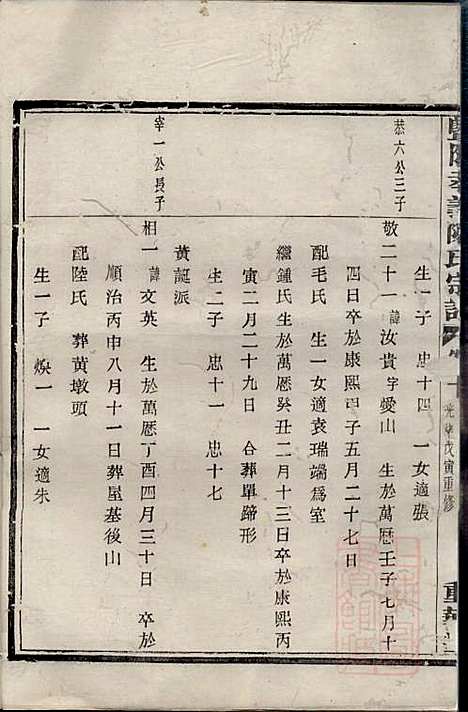 暨陽孝義陳氏宗譜 卷十 光緒戊寅重修
生一子 忠十四 一女適張
恭六公三子
敬二十一 諱汝貴字愛山 生於萬曆壬子七月十
四日卒於康熙甲子五月二十七日
配毛氏 生一女適袁瑞端爲室
繼鍾氏生於萬曆癸丑二月十三日卒於康熙丙
寅二月二十九日 合葬單蹄形
生二子 忠十一 忠十七
黃誕派
宰一公長子
相一 諱文英 生於萬曆丁酉四月三十日 卒於
順治丙申八月十一日葬屋基後山
配陸氏 葬黃墩頭
生一子 煥一 一女適朱